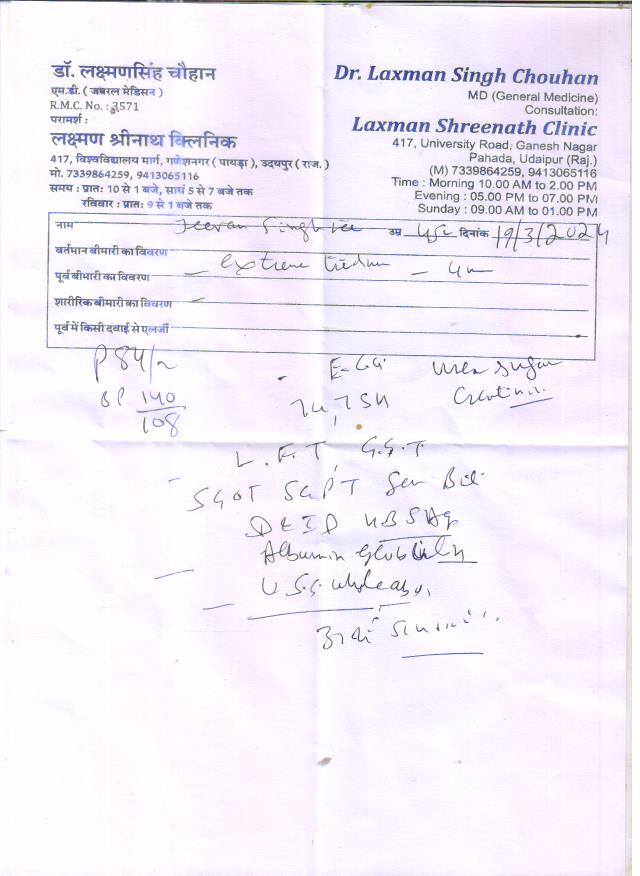 डॉ. लक्ष्मणसिंह चौहान
एम.डी. ( जनरल मेडिसन )
R.M.C. No. : 3571
परामर्श :
लक्ष्मण श्रीनाथ क्लिनिक
417, विश्वविद्यालय मार्ग, गणेशनगर ( पायड़ा ), उदयपुर ( राज. )
मो. 7339864259, 9413065116
समय : प्रातः 10 से 1 बजे, सायं 5 से 7 बजे तक
रविवार : प्रातः 9 से 1 बजे तक
Dr. Laxman Singh Chouhan
MD (General Medicine)
Consultation:
Laxman Shreenath Clinic
417, University Road, Ganesh Nagar
Pahada, Udaipur (Raj.)
(M) 7339864259, 9413065116
Time : Morning 10.00 AM to 2.00 PM
Evening : 05.00 PM to 07.00 PM
Sunday : 09.00 AM to 01.00 PM
नाम Jeevan Singh उम्र दिनांक 19/3/2024
वर्तमान बीमारी का विवरण extreme
पूर्व बीमारी का विवरण
शारीरिक बीमारी का विवरण
पूर्व में किसी दवाई से एलर्जी
P 84/~
BP 140/108
E.C.G. Urea Sugar
L.F.T, G.G.T
SGOT SGPT Ser Bil
HBSAg
Albumin Globulin